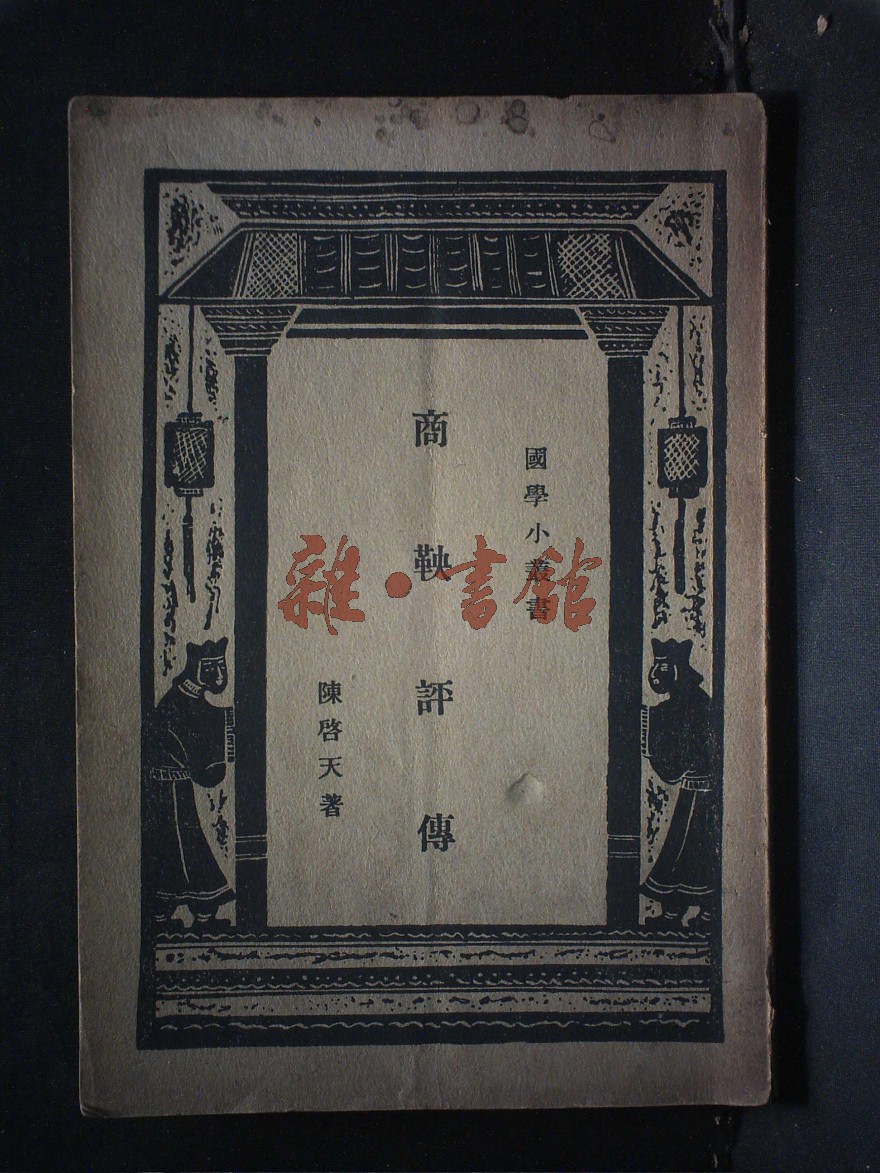 國學小叢書
商鞅評傳
陳啓天著
雜·書館